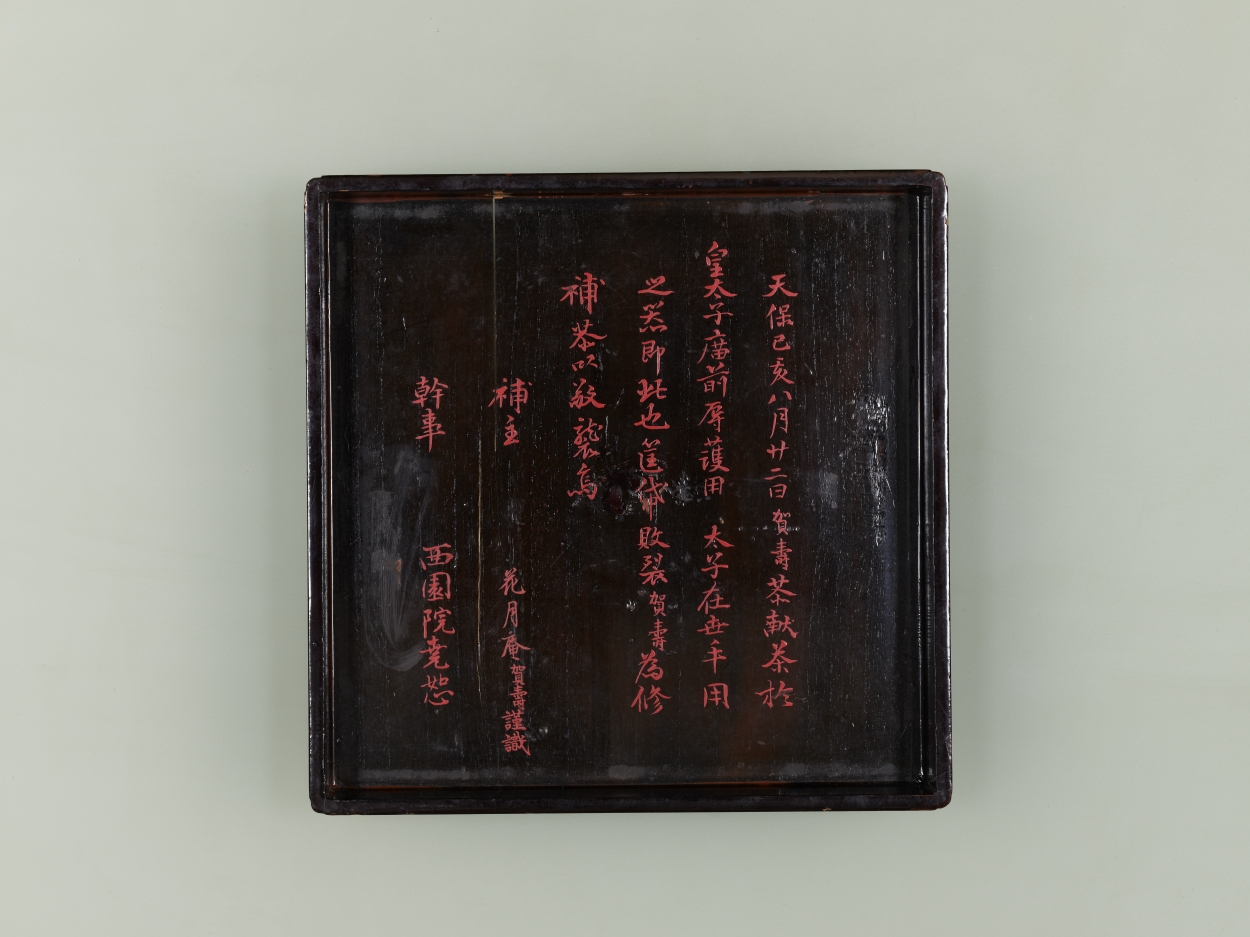 天保己亥八月廿二日賀壽茶献茶於
皇太子廣前辱護用 太子在世手用
之器即此也筐帒敗裂賀壽為修
補恭以敬襲焉
補主 花月庵賀壽謹識
幹事 西園院堯恕